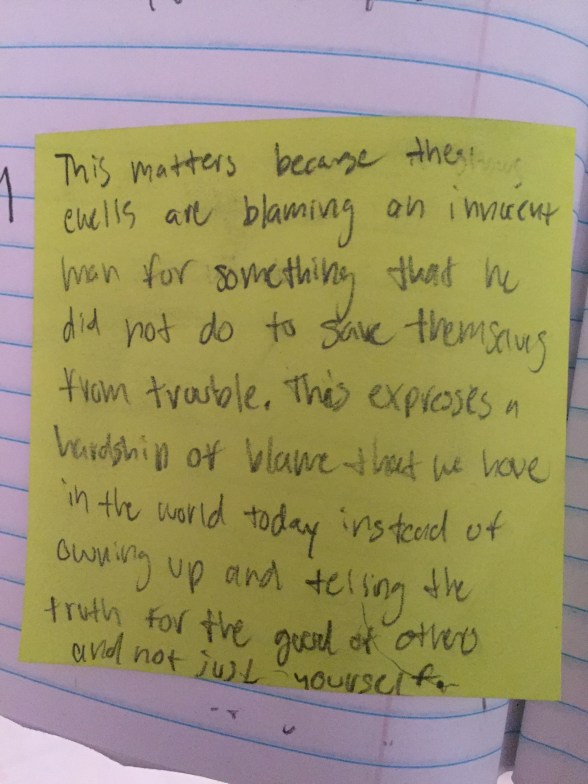 This matters because the
ewells are blaming an innocent
man for something that he
did not do to save themselves
from trouble. This expresses a
hardship of blame that we have
in the world today instead of
owning up and telling the
truth for the good of others
and not just yourself.